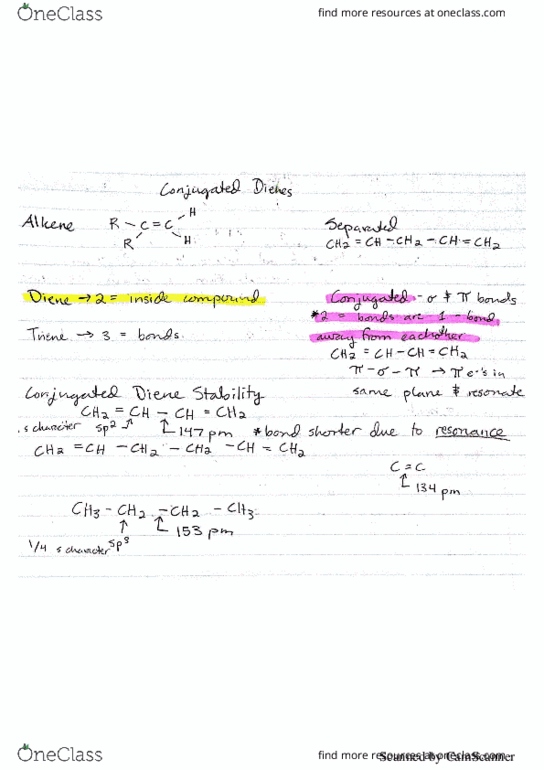 OneClass
find more resources at oneclass.com
Conjugated Dienes
Alkene
R - C = C
H
R
H
Separated
CH2 = CH - CH2 - CH = CH2
Diene → 2 = inside compound
Conjugated - σ & π bonds
*2 = bonds are 1 - bond
away from eachother
Triene → 3 = bonds.
CH2 = CH - CH = CH2
π - σ - π → π e-'s in
same plane & resonate
Conjugated Diene Stability
CH2 = CH - CH = CH2
s character sp2 147 pm *bond shorter due to resonance
CH2 = CH - CH2 - CH2 - CH = CH2
C = C
134 pm
CH3 - CH2 - CH2 - CH3
153 pm
1/4 s character sp3
OneClass
find more resources at oneclass.com
Scanned by CamScanner